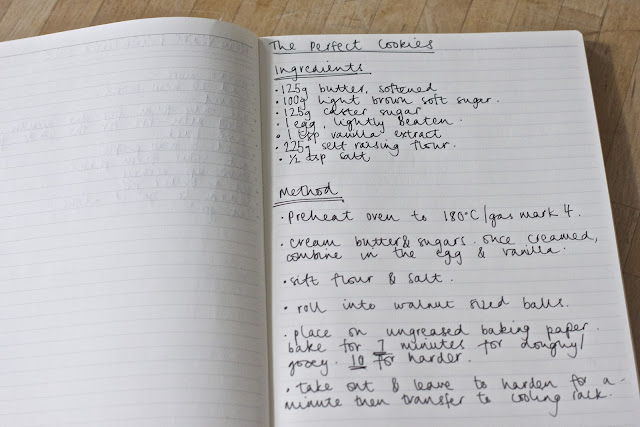 The Perfect Cookies
Ingredients
• 125g butter, softened
• 100g light brown soft sugar.
• 125g caster sugar
• 1 egg, lightly beaten.
• 1 tsp vanilla extract
• 225g self raising flour.
• ½ tsp salt
Method
• Preheat oven to 180°C/gas mark 4.
• cream butter & sugars. once creamed,
combine in the egg & vanilla.
• sift flour & salt.
• roll into walnut sized balls.
• place on ungreased baking paper.
bake for 7 minutes for doughy/
gooey. 10 for harder.
• take out & leave to harden for a
minute then transfer to cooling rack.